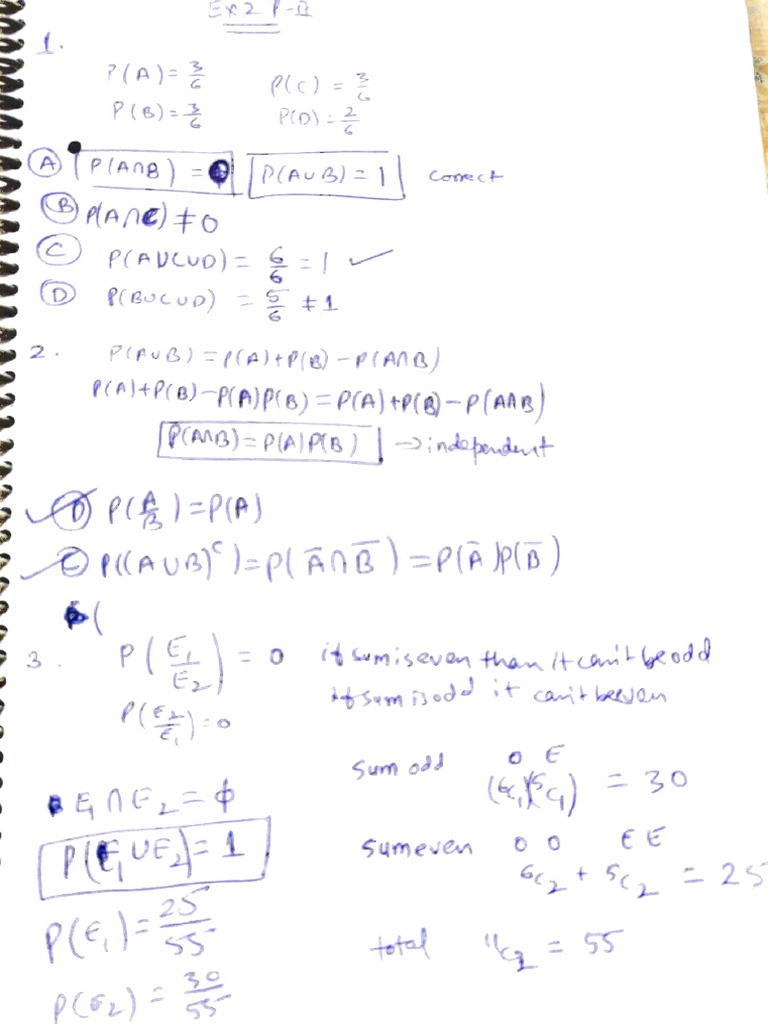 Ex 2 P-II
1.
P(A) = 3/6 P(C) = 3/6
P(B) = 3/6 P(D) = 2/6
(A) P(A∩B) = P(A∪B) = 1 correct
(B) P(A∩C) ≠ 0
(C) P(A∪C∪D) = 6/6 = 1 ✓
(D) P(B∪C∪D) = 5/6 ≠ 1
2. P(A∪B) = P(A)+P(B) - P(A∩B)
P(A)+P(B) - P(A)P(B) = P(A)+P(B) - P(A∩B)
P(A∩B) = P(A)P(B) → independent
✓ P(A/B) = P(A)
✓ (C) P((A∪B)ᶜ) = P(A̅∩B̅) = P(A̅)P(B̅)
(
3. P(E₁/E₂) = 0 if sum is even than it can't be odd
P(E₂/E₁) = 0 if sum is odd it can't be even
sum odd O E
(⁶C₁)(⁵C₁) = 30
E₁∩E₂ = ϕ
P(E₁∪E₂) = 1
sum even O O E E
⁶C₂ + ⁵C₂ = 25
P(E₁) = 25/55
total ¹¹C₂ = 55
P(E₂) = 30/55